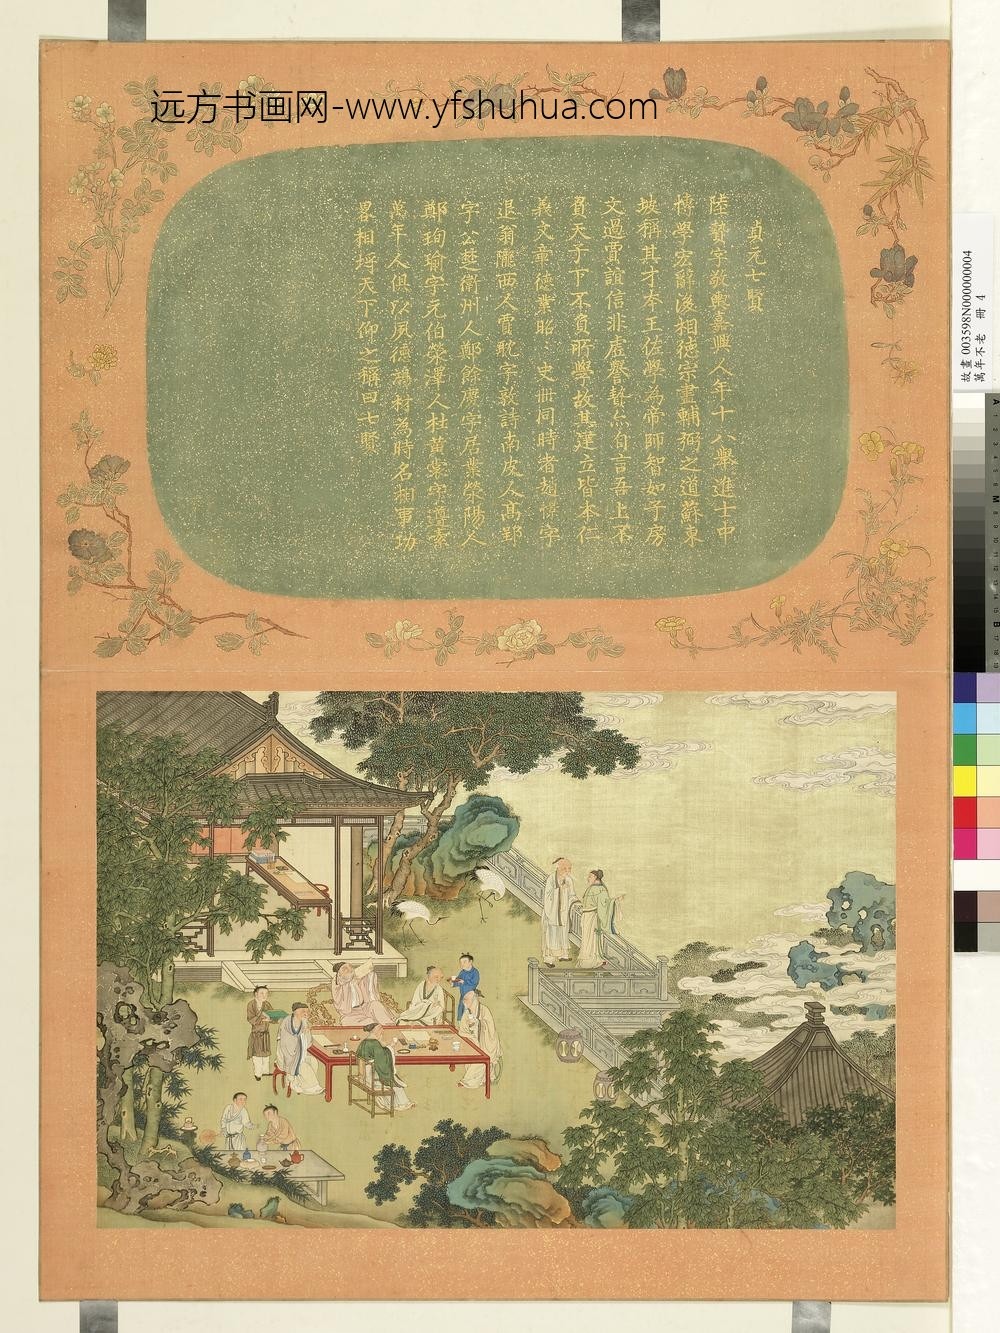 远方书画网-www.yfshuhua.com
貞元七賢
陸贄字敬輿嘉興人年十八舉進士中
博學宏辭後相德宗盡輔弼之道蘇東
坡稱其才本王佐學為帝師智如子房
文過賈誼信非虛譽贄亦自言吾上不
負天子下不負所學故其建立皆本仁
義文章德業昭 史冊同時者趙憬字
退翁隴西人賈耽字敦詩南皮人高郢
字公楚衛州人鄭餘慶字居業滎陽人
鄭珣瑜字元伯滎澤人杜黃裳字遵素
萬年人俱以夙德鴻材為時名相事功
畧相埒天下仰之稱曰七賢
故畫 003598N000000004
萬年不老 冊 4